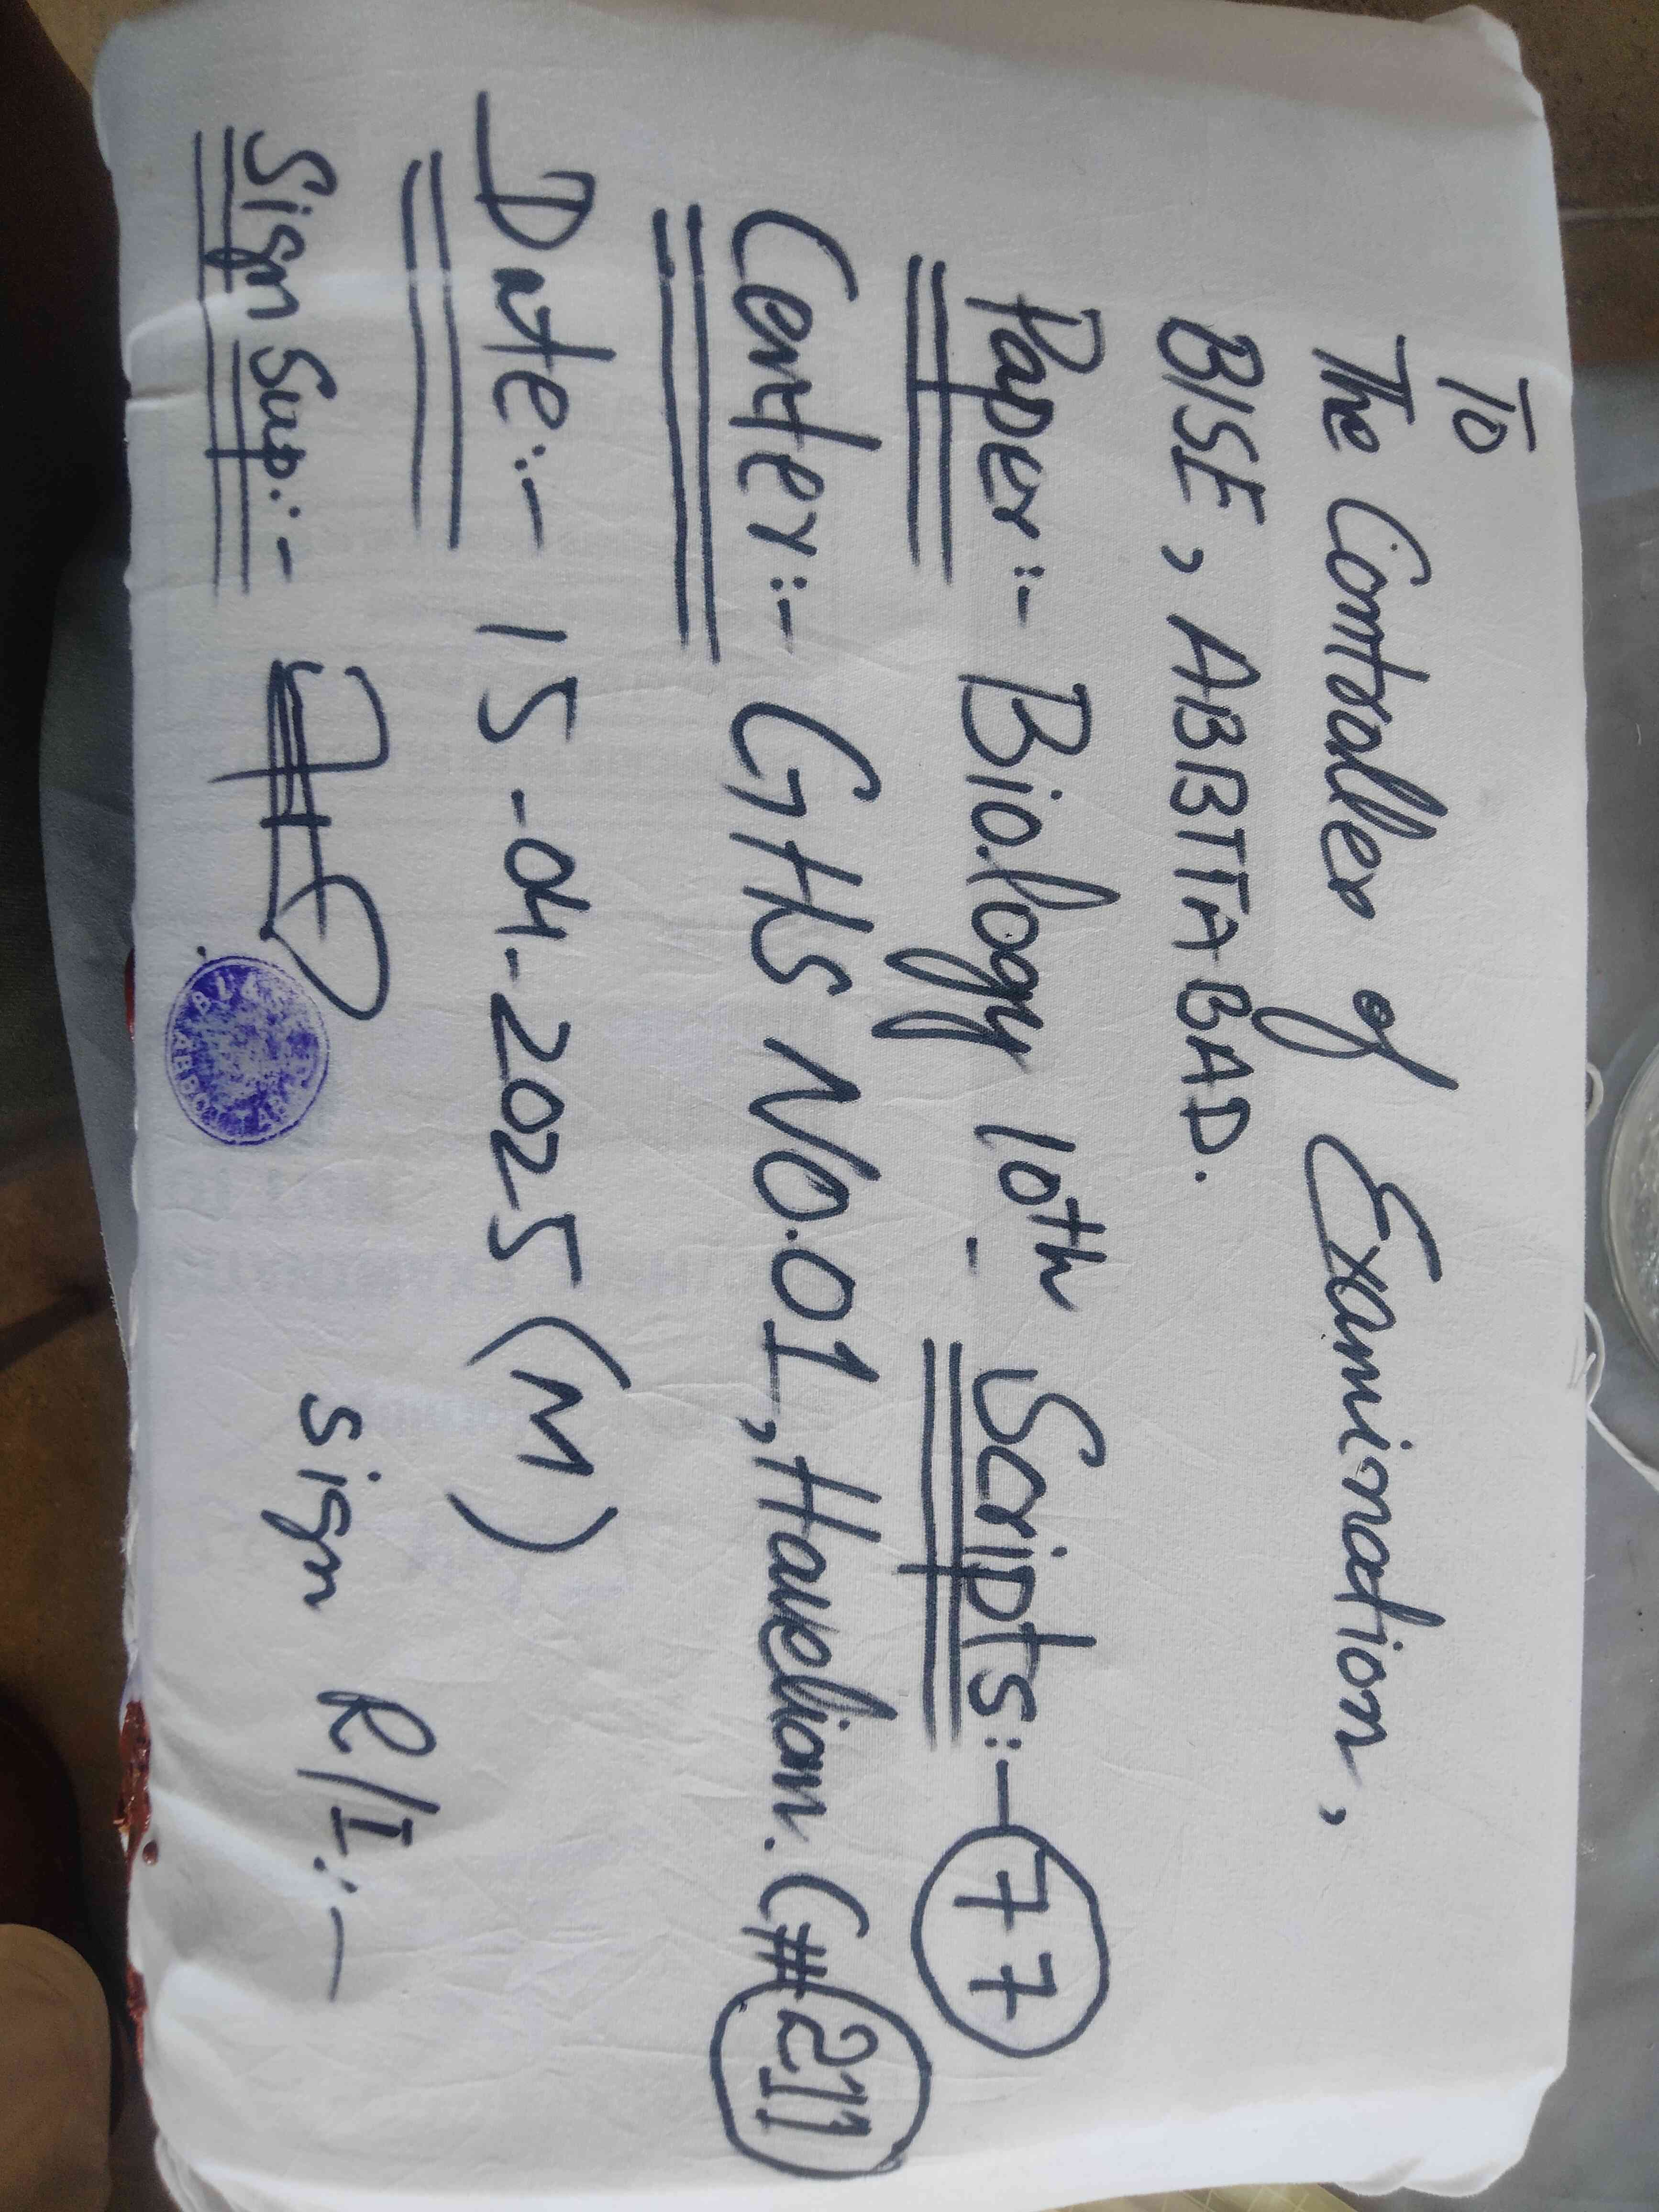 To
The Controller of Examination,
BISE, ABBTTABAD.
Paper:- Biology 10th Scripts:- 77
Center:- GHS No.01, Havelian. (#211)
Date:- 15-04-2025 (M)
Sign Sup:- Sign R/I:-